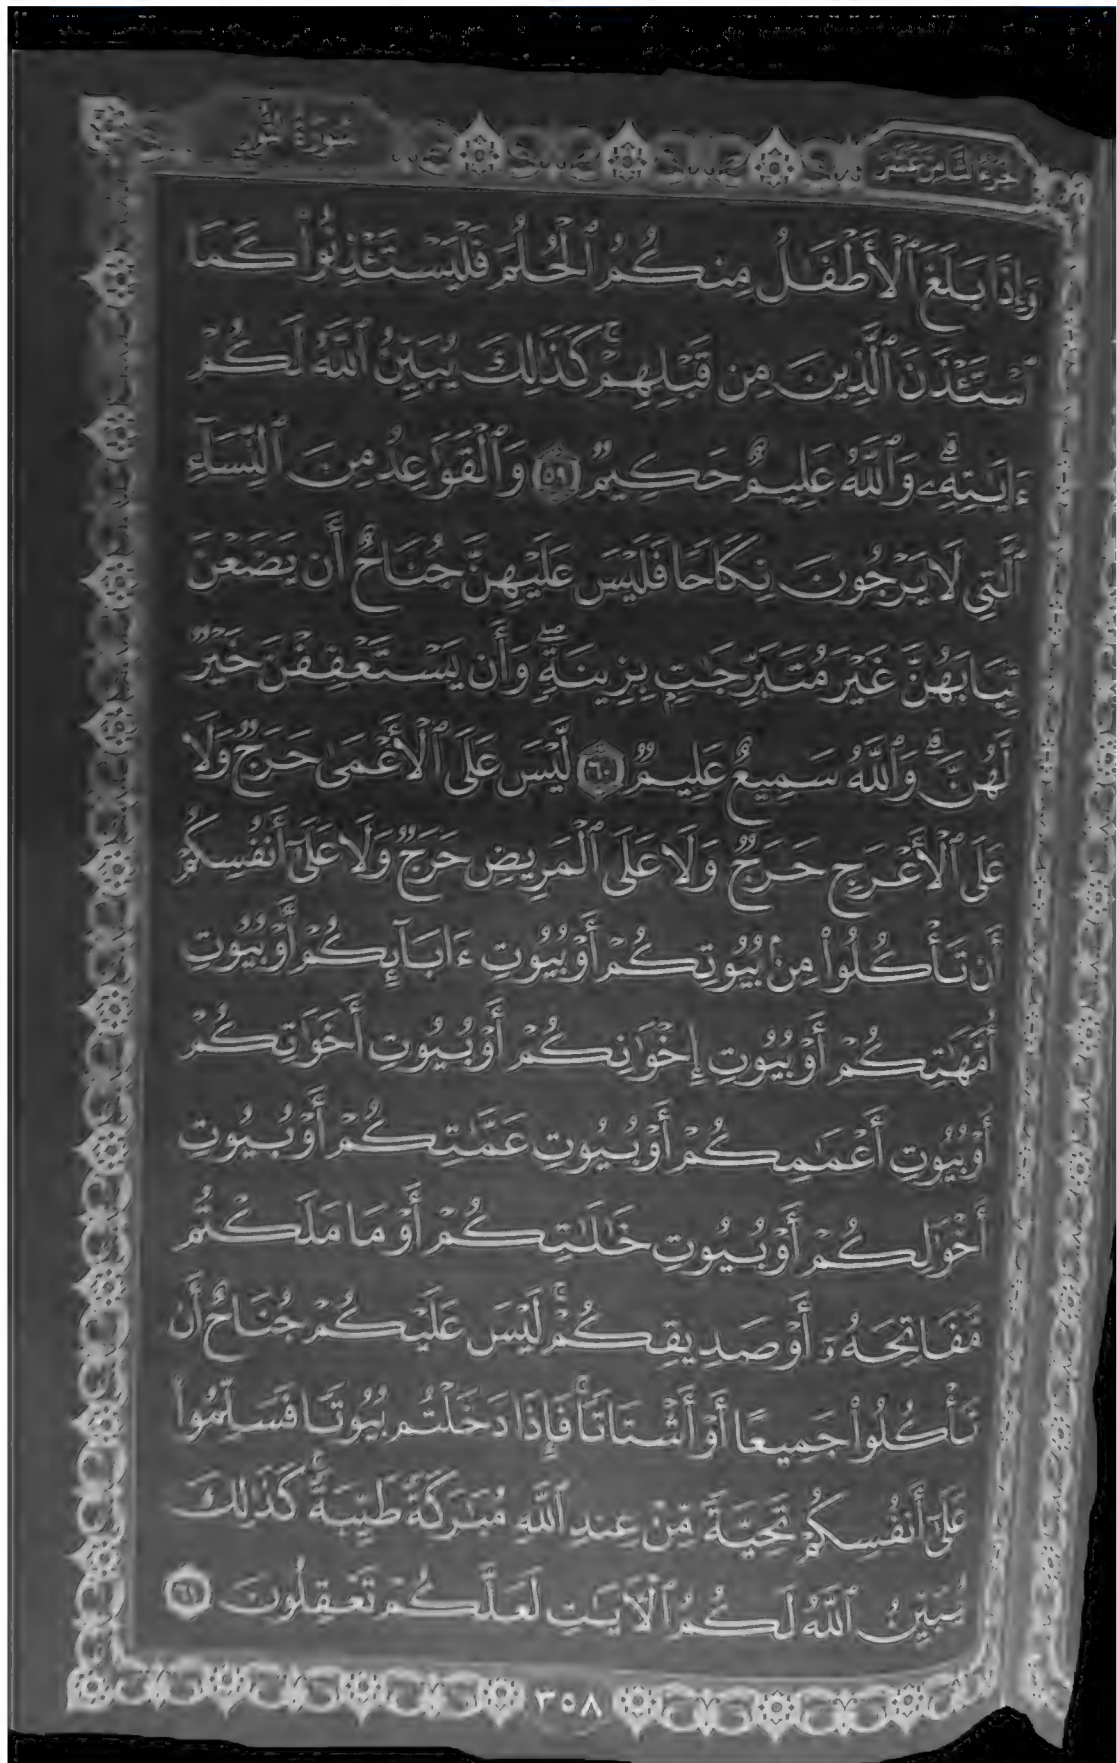 الجزء الثامن عشر
سورة النور
وَإِذَا بَلَغَ ٱلْأَطْفَـٰلُ مِنكُمُ ٱلْحُلُمَ فَلْيَسْتَـْٔذِنُوا۟ كَمَا
ٱسْتَـْٔذَنَ ٱلَّذِينَ مِن قَبْلِهِمْ ۚ كَذَٰلِكَ يُبَيِّنُ ٱللَّهُ لَكُمْ
ءَايَـٰتِهِۦ ۗ وَٱللَّهُ عَلِيمٌ حَكِيمٌ ٥٩ وَٱلْقَوَٰعِدُ مِنَ ٱلنِّسَآءِ
ٱلَّـٰتِى لَا يَرْجُونَ نِكَاحًا فَلَيْسَ عَلَيْهِنَّ جُنَاحٌ أَن يَضَعْنَ
ثِيَابَهُنَّ غَيْرَ مُتَبَرِّجَـٰتٍۭ بِزِينَةٍ ۖ وَأَن يَسْتَعْفِفْنَ خَيْرٌ
لَّهُنَّ ۗ وَٱللَّهُ سَمِيعٌ عَلِيمٌ ٦٠ لَّيْسَ عَلَى ٱلْأَعْمَىٰ حَرَجٌ وَلَا
عَلَى ٱلْأَعْرَجِ حَرَجٌ وَلَا عَلَى ٱلْمَرِيضِ حَرَجٌ وَلَا عَلَىٰٓ أَنفُسِكُمْ
أَن تَأْكُلُوا۟ مِنۢ بُيُوتِكُمْ أَوْ بُيُوتِ ءَابَآئِكُمْ أَوْ بُيُوتِ
أُمَّهَـٰتِكُمْ أَوْ بُيُوتِ إِخْوَٰنِكُمْ أَوْ بُيُوتِ أَخَوَٰتِكُمْ
أَوْ بُيُوتِ أَعْمَـٰمِكُمْ أَوْ بُيُوتِ عَمَّـٰتِكُمْ أَوْ بُيُوتِ
أَخْوَٰلِكُمْ أَوْ بُيُوتِ خَـٰلَـٰتِكُمْ أَوْ مَا مَلَكْتُم
مَّفَاتِحَهُۥٓ أَوْ صَدِيقِكُمْ ۚ لَيْسَ عَلَيْكُمْ جُنَاحٌ أَن
تَأْكُلُوا۟ جَمِيعًا أَوْ أَشْتَاتًا ۚ فَإِذَا دَخَلْتُم بُيُوتًا فَسَلِّمُوا۟
عَلَىٰٓ أَنفُسِكُمْ تَحِيَّةً مِّنْ عِندِ ٱللَّهِ مُبَـٰرَكَةً طَيِّبَةً ۚ كَذَٰلِكَ
يُبَيِّنُ ٱللَّهُ لَكُمُ ٱلْـَٔايَـٰتِ لَعَلَّكُمْ تَعْقِلُونَ ٦١
٣٥٨